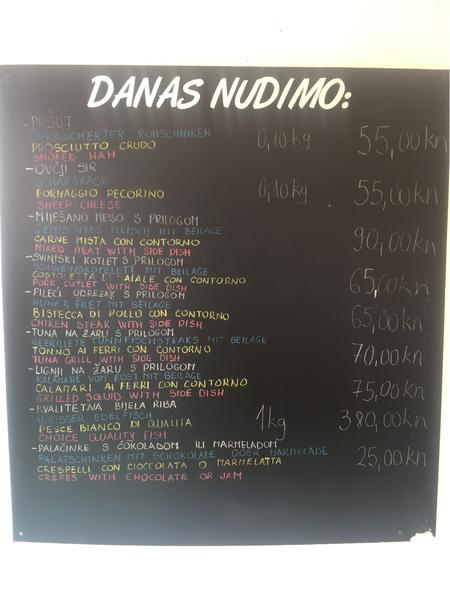 DANAS NUDIMO:
-PRŠUT
GERAUCHERTER ROHSCHINKEN 0,10 kg 55,00 kn
PROSCIUTTO CRUDO
SMOKED HAM
-OVČJI SIR
SCHAFSKÄSE
FORMAGGIO PECORINO 0,10 kg 55,00 kn
SHEEP CHEESE
-MIJEŠANO MESO S PRILOGOM
GEMISCHTES FLEISCH MIT BEILAGE 90,00 kn
CARNE MISTA CON CONTORNO
MIXED MEAT WITH SIDE DISH
-SVINJSKI KOTLET S PRILOGOM
SCHWEINSKOTELETT MIT BEILAGE 65,00 kn
COSTOLETTA DI MAIALE CON CONTORNO
PORK CUTLET WITH SIDE DISH
-PILEĆI ODREZAK S PRILOGOM
HÜNER FILET MIT BEILAGE 65,00 kn
BISTECCA DI POLLO CON CONTORNO
CHIKEN STEAK WITH SIDE DISH
-TUNA NA ŽARU S PRILOGOM
GEGRILLETE TUNNFISCHSTEAKS MIT BEILAGE
TONNO AI FERRI CON CONTORNO 70,00 kn
TUNA GRILL WITH SIDE DISH
-LIGNJI NA ŽARU S PRILOGOM
KALAMARE VOM ROST MIT BEILAGE
CALAMARI AI FERRI CON CONTORNO 75,00 kn
GRILLED SQUID WITH SIDE DISH
-KVALITETNA BIJELA RIBA
WEISSER EDELFISCH 1kg 380,00 kn
PESCE BIANCO DI QUALITA
CHOICE QUALITY FISH
-PALAČINKE S ČOKOLADOM ILI MARMELADOM
PALATSCHINKEN MIT SCHOKOLADE ODER MARMELADE 25,00 kn
CRESPELLI CON CIOCCOLATA O MARMELATTA
CREPES WITH CHOCOLATE OR JAM